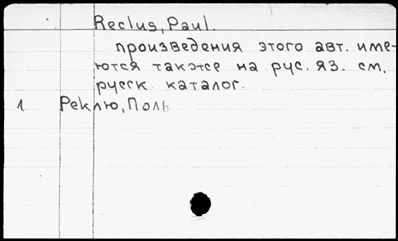 Reclus, Paul.
произведения этого авт. име-
ются также на рус. яз. см.
русск. каталог.
1 Реклю, Поль